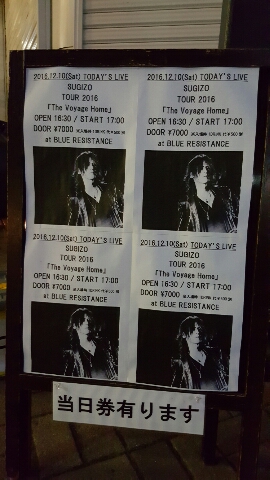 2016.12.10(Sat) TODAY'S LIVE
SUGIZO
TOUR 2016
「The Voyage Home」
OPEN 16:30 / START 17:00
DOOR ¥7000
at BLUE RESISTANCE
2016.12.10(Sat) TODAY'S LIVE
SUGIZO
TOUR 2016
「The Voyage Home」
OPEN 16:30 / START 17:00
DOOR ¥7000
at BLUE RESISTANCE
2016.12.10(Sat) TODAY'S LIVE
SUGIZO
TOUR 2016
「The Voyage Home」
OPEN 16:30 / START 17:00
DOOR ¥7000
at BLUE RESISTANCE
2016.12.10(Sat) TODAY'S LIVE
SUGIZO
TOUR 2016
「The Voyage Home」
OPEN 16:30 / START 17:00
DOOR ¥7000
at BLUE RESISTANCE
当日券有ります